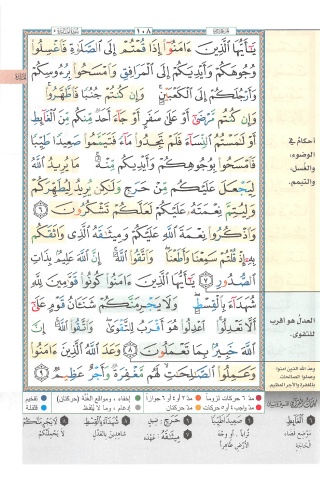 ١٠٨
يَـٰٓأَيُّهَا ٱلَّذِينَ ءَامَنُوٓا۟ إِذَا قُمْتُمْ إِلَى ٱلصَّلَوٰةِ فَٱغْسِلُوا۟
وُجُوهَكُمْ وَأَيْدِيَكُمْ إِلَى ٱلْمَرَافِقِ وَٱمْسَحُوا۟ بِرُءُوسِكُمْ
وَأَرْجُلَكُمْ إِلَى ٱلْكَعْبَيْنِ ۚ وَإِن كُنتُمْ جُنُبًا فَٱطَّهَّرُوا۟ ۚ
وَإِن كُنتُم مَّرْضَىٰٓ أَوْ عَلَىٰ سَفَرٍ أَوْ جَآءَ أَحَدٌ مِّنكُم مِّنَ ٱلْغَآئِطِ
أَوْ لَـٰمَسْتُمُ ٱلنِّسَآءَ فَلَمْ تَجِدُوا۟ مَآءً فَتَيَمَّمُوا۟ صَعِيدًا طَيِّبًا
فَٱمْسَحُوا۟ بِوُجُوهِكُمْ وَأَيْدِيكُم مِّنْهُ ۚ مَا يُرِيدُ ٱللَّهُ
لِيَجْعَلَ عَلَيْكُم مِّنْ حَرَجٍ وَلَـٰكِن يُرِيدُ لِيُطَهِّرَكُمْ
وَلِيُتِمَّ نِعْمَتَهُۥ عَلَيْكُمْ لَعَلَّكُمْ تَشْكُرُونَ ٦
وَٱذْكُرُوا۟ نِعْمَةَ ٱللَّهِ عَلَيْكُمْ وَمِيثَـٰقَهُ ٱلَّذِى وَاثَقَكُم
بِهِۦٓ إِذْ قُلْتُمْ سَمِعْنَا وَأَطَعْنَا ۖ وَٱتَّقُوا۟ ٱللَّهَ ۚ إِنَّ ٱللَّهَ عَلِيمٌۢ بِذَاتِ
ٱلصُّدُورِ ٧ يَـٰٓأَيُّهَا ٱلَّذِينَ ءَامَنُوا۟ كُونُوا۟ قَوَّٰمِينَ لِلَّهِ
شُهَدَآءَ بِٱلْقِسْطِ ۖ وَلَا يَجْرِمَنَّكُمْ شَنَـَٔانُ قَوْمٍ عَلَىٰٓ
أَلَّا تَعْدِلُوا۟ ۚ ٱعْدِلُوا۟ هُوَ أَقْرَبُ لِلتَّقْوَىٰ ۖ وَٱتَّقُوا۟ ٱللَّهَ ۚ إِنَّ
ٱللَّهَ خَبِيرٌۢ بِمَا تَعْمَلُونَ ٨ وَعَدَ ٱللَّهُ ٱلَّذِينَ ءَامَنُوا۟
وَعَمِلُوا۟ ٱلصَّـٰلِحَـٰتِ ۙ لَهُم مَّغْفِرَةٌ وَأَجْرٌ عَظِيمٌ ٩
أحكام في
الوضوء،
والغُسل،
والتيمم.
العدل هو أقرب
للتقوى.
وعد الله الذين آمنوا
وعملوا الصالحات
بالمغفرة والأجر العظيم
مد ٦ حركات لزوماً
مد ٢ أو ٤ أو ٦ جوازاً
إخفاء، ومواقع الغنة (حركتان)
تفخيم
مد واجب ٤ أو ٥ حركات
مد حركتان
إدغام، وما لا يُلفظ
قلقلة